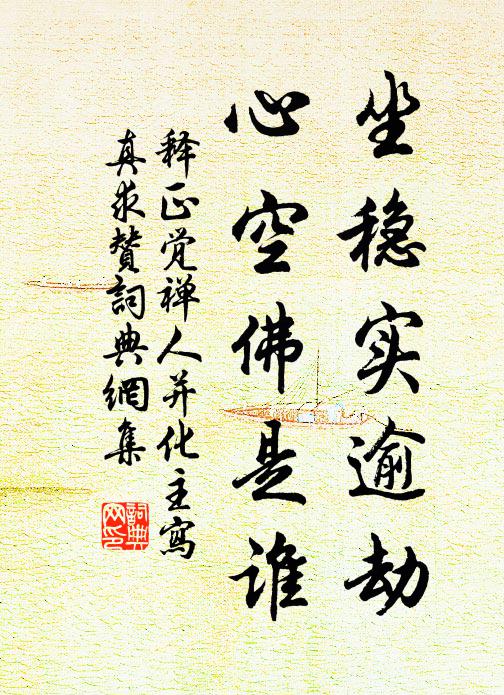 坐稳实逾劫
心空佛是谁
释正觉禅人并化主寫
真求赞詞典網集
詞典
网印